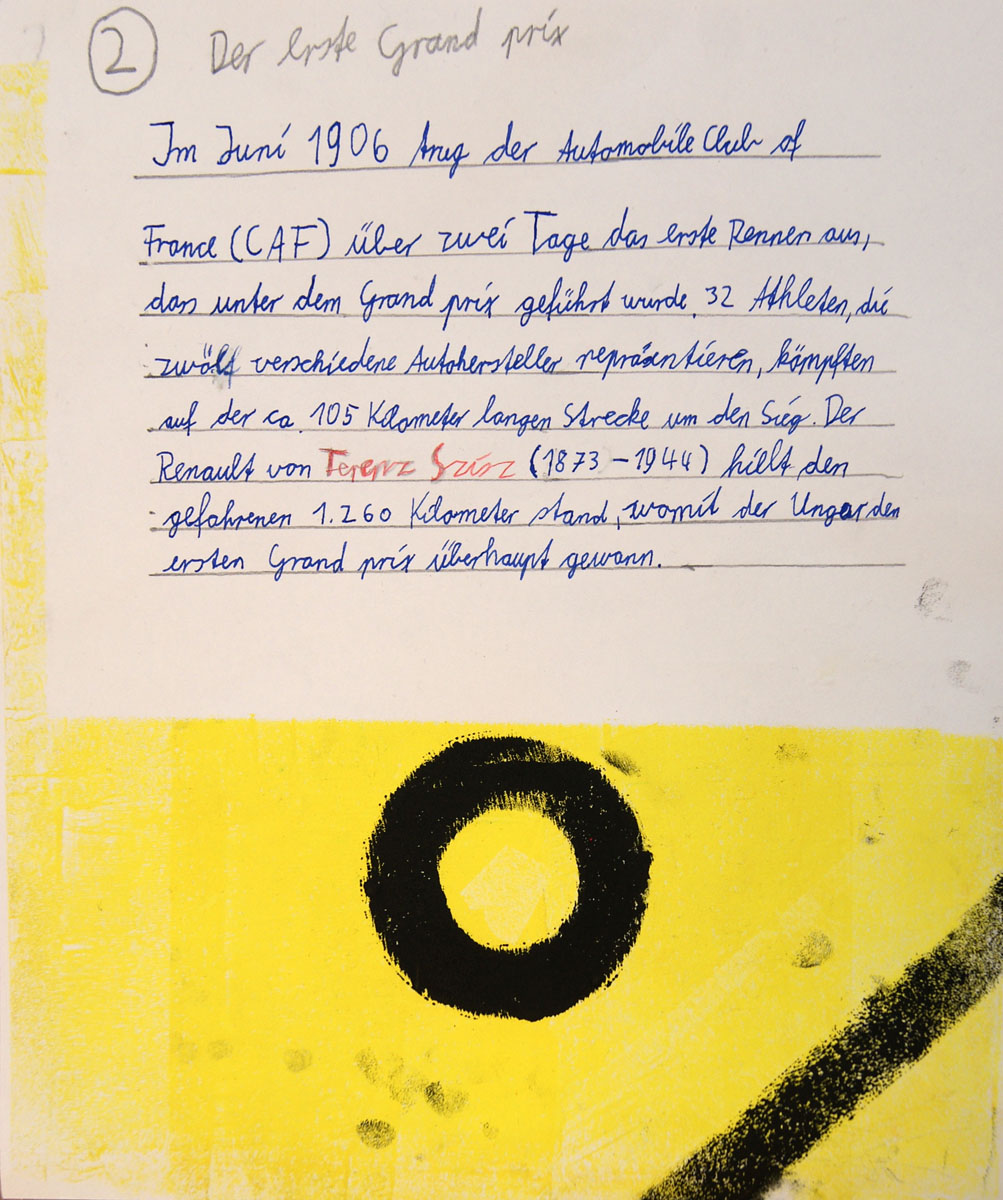 2 Der erste Grand prix
Im Juni 1906 trug der Automobile Club of
France (CAF) über zwei Tage das erste Rennen aus,
dass unter dem Grand prix geführt wurde. 32 Athleten, die
zwölf verschiedene Autohersteller repräsentieren, kämpften
auf der ca. 105 Kilometer langen Strecke um den Sieg. Der
Renault von Ferenz Szisz (1873 – 1944) hielt den
gefahrenen 1.260 Kilometer stand, womit der Ungar den
ersten Grand prix überhaupt gewann.